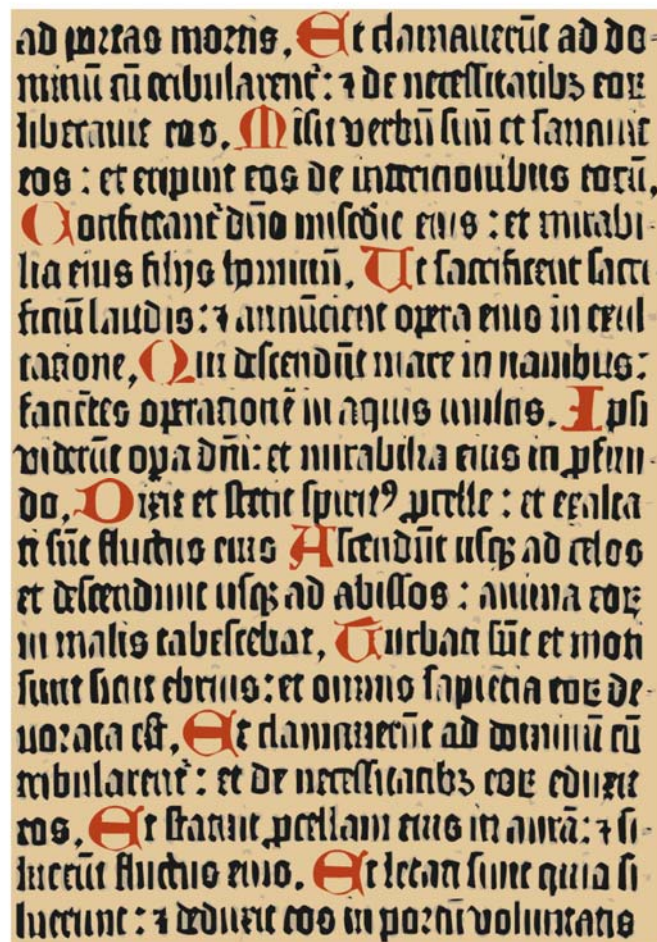 ad portas mortis. Et clamauerūt ad do-
minū cū tribularent᷑: ⁊ de necessitatibꝫ eoꝝ
liberauit eos. Misit verbū suū et sanauit
eos : et eripuit eos de interitionibus eorū.
Confiteant᷑ dn̄o mīscd̄ie eius : et mirabi-
lia eius filijs hominū. Ut sacrificent sacri
ficiū laudis: ⁊ annūcient opera eius in exul
tatione. Qui descendūt mare in nauibus:
faciētes operationē in aquis multis. Ipsi
viderūt oꝑa dn̄i: et mirabilia eius in ꝓfun-
do. Dixit et stetit spiritꝰ ꝓcelle : et exalta
ti sūt fluctus eius Ascendūt usqꝫ ad celos
et descendunt usqꝫ ad abissos : anima eoꝝ
in malis tabescebat. Turbati sūt et moti
sunt sicut ebrius: et omnis sapiētia eoꝝ de-
uorata est. Et clamauerūt ad dominū cū
tribularent᷑ : et de necessitatibꝫ eoꝝ eduxit
eos. Et statuit ꝓcellam eius in aurā: ⁊ si-
luerūt fluctus eius. Et letati sunt quia si
luerunt : ⁊ deduxit eos in portū voluntatis